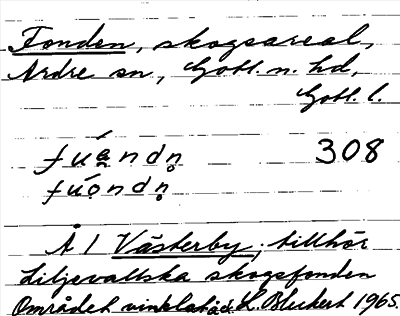 Fonden, skogsareal,
Ardre sn., Gotl. n. hd,
Gotl. l.
fúa̰ndn̥ 308
fúo̰ndn̥
Å 1 Västerby; tillhör
Liljevallska skogsfonden
Området L. Bleckert 1965.